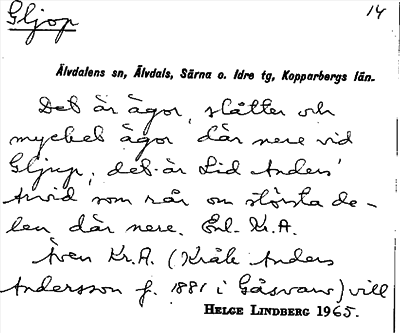 Gljop
14
Älvdalens sn, Älvdals, Särna o. Idre tg, Kopparbergs län.
Det är ägor, slåtter och
mycket ägor där nere vid
Gljup, det är Lid Anders'
Arvid som rår om största de-
len där nere. Enl. Kr.A.
Även Kr.A. (Kråk Anders
Andersson f. 1881 i Gåsvarv) vill
HELGE LINDBERG 1965.